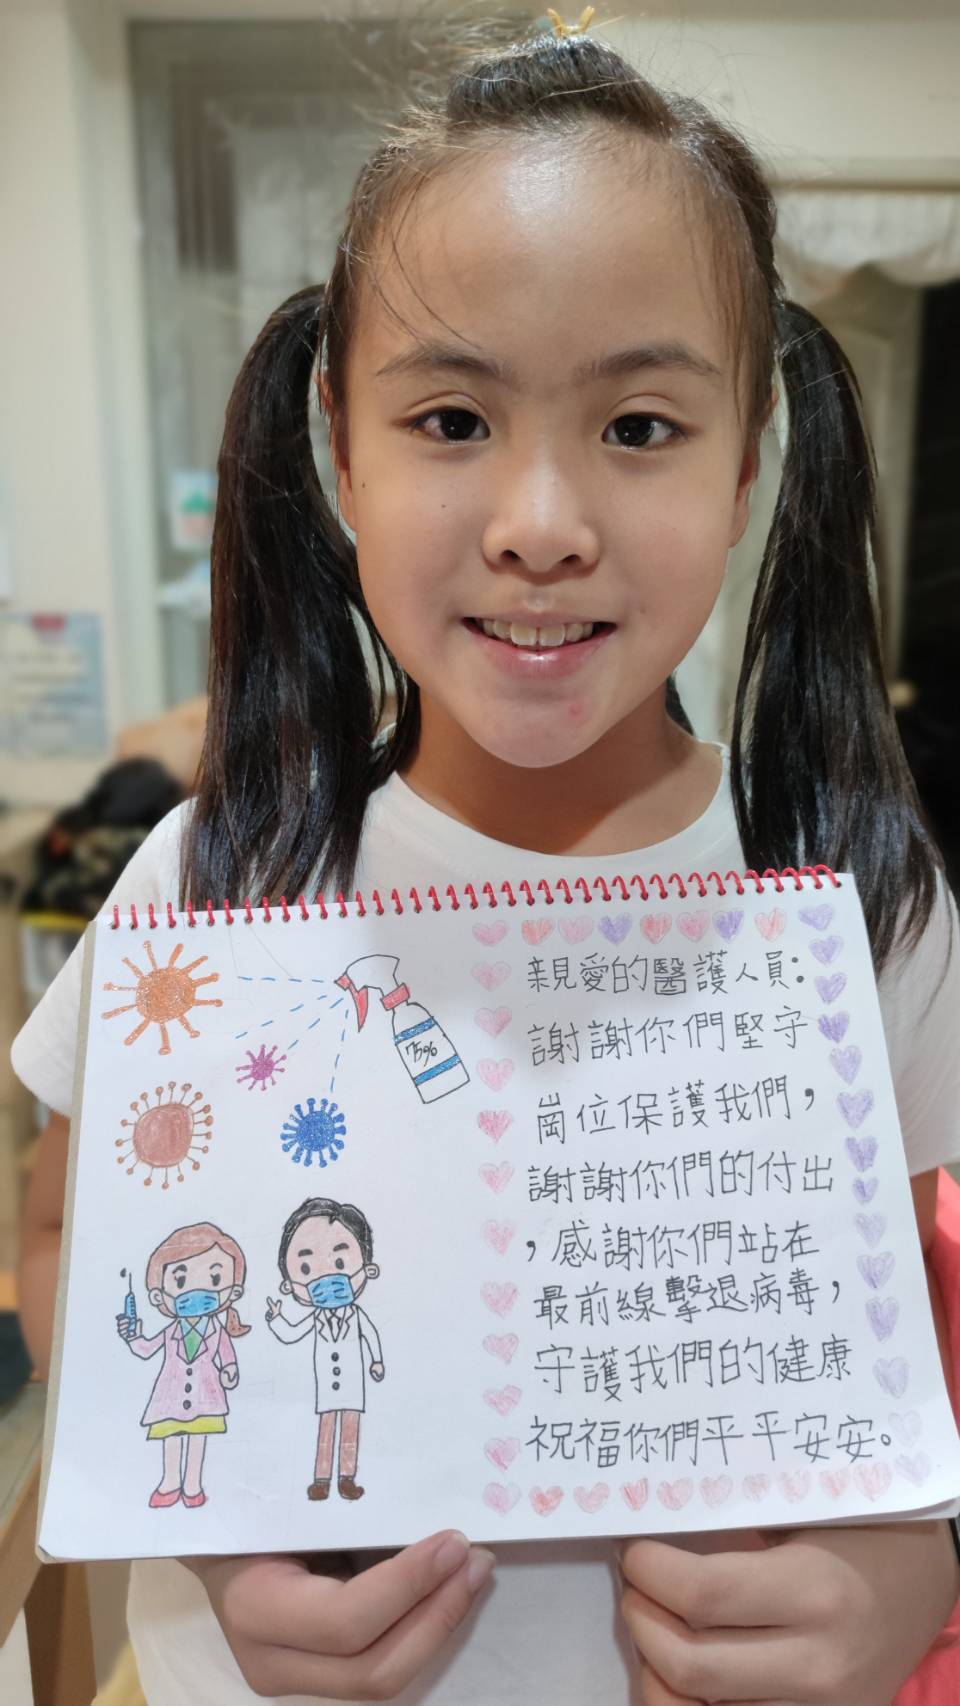 75%
親愛的醫護人員:
謝謝你們堅守
崗位保護我們，
謝謝你們的付出
，感謝你們站在
最前線擊退病毒，
守護我們的健康
祝福你們平平安安。